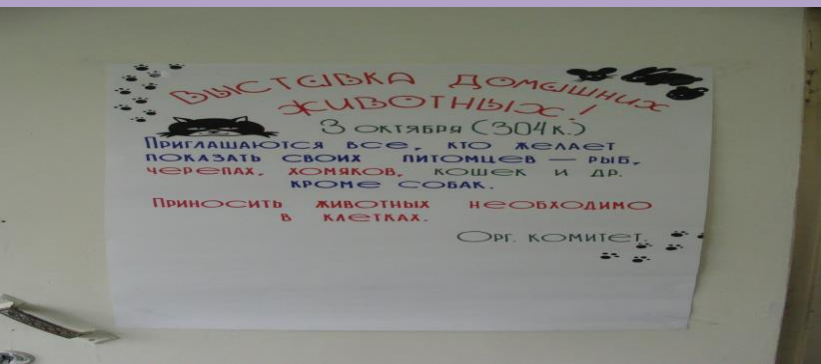 Выставка домашних
животных!
3 октября (304 к.)
Приглашаются все, кто желает
показать своих питомцев — рыб,
черепах, хомяков, кошек и др.
кроме собак.
Приносить животных необходимо
в клетках.
Орг. комитет.